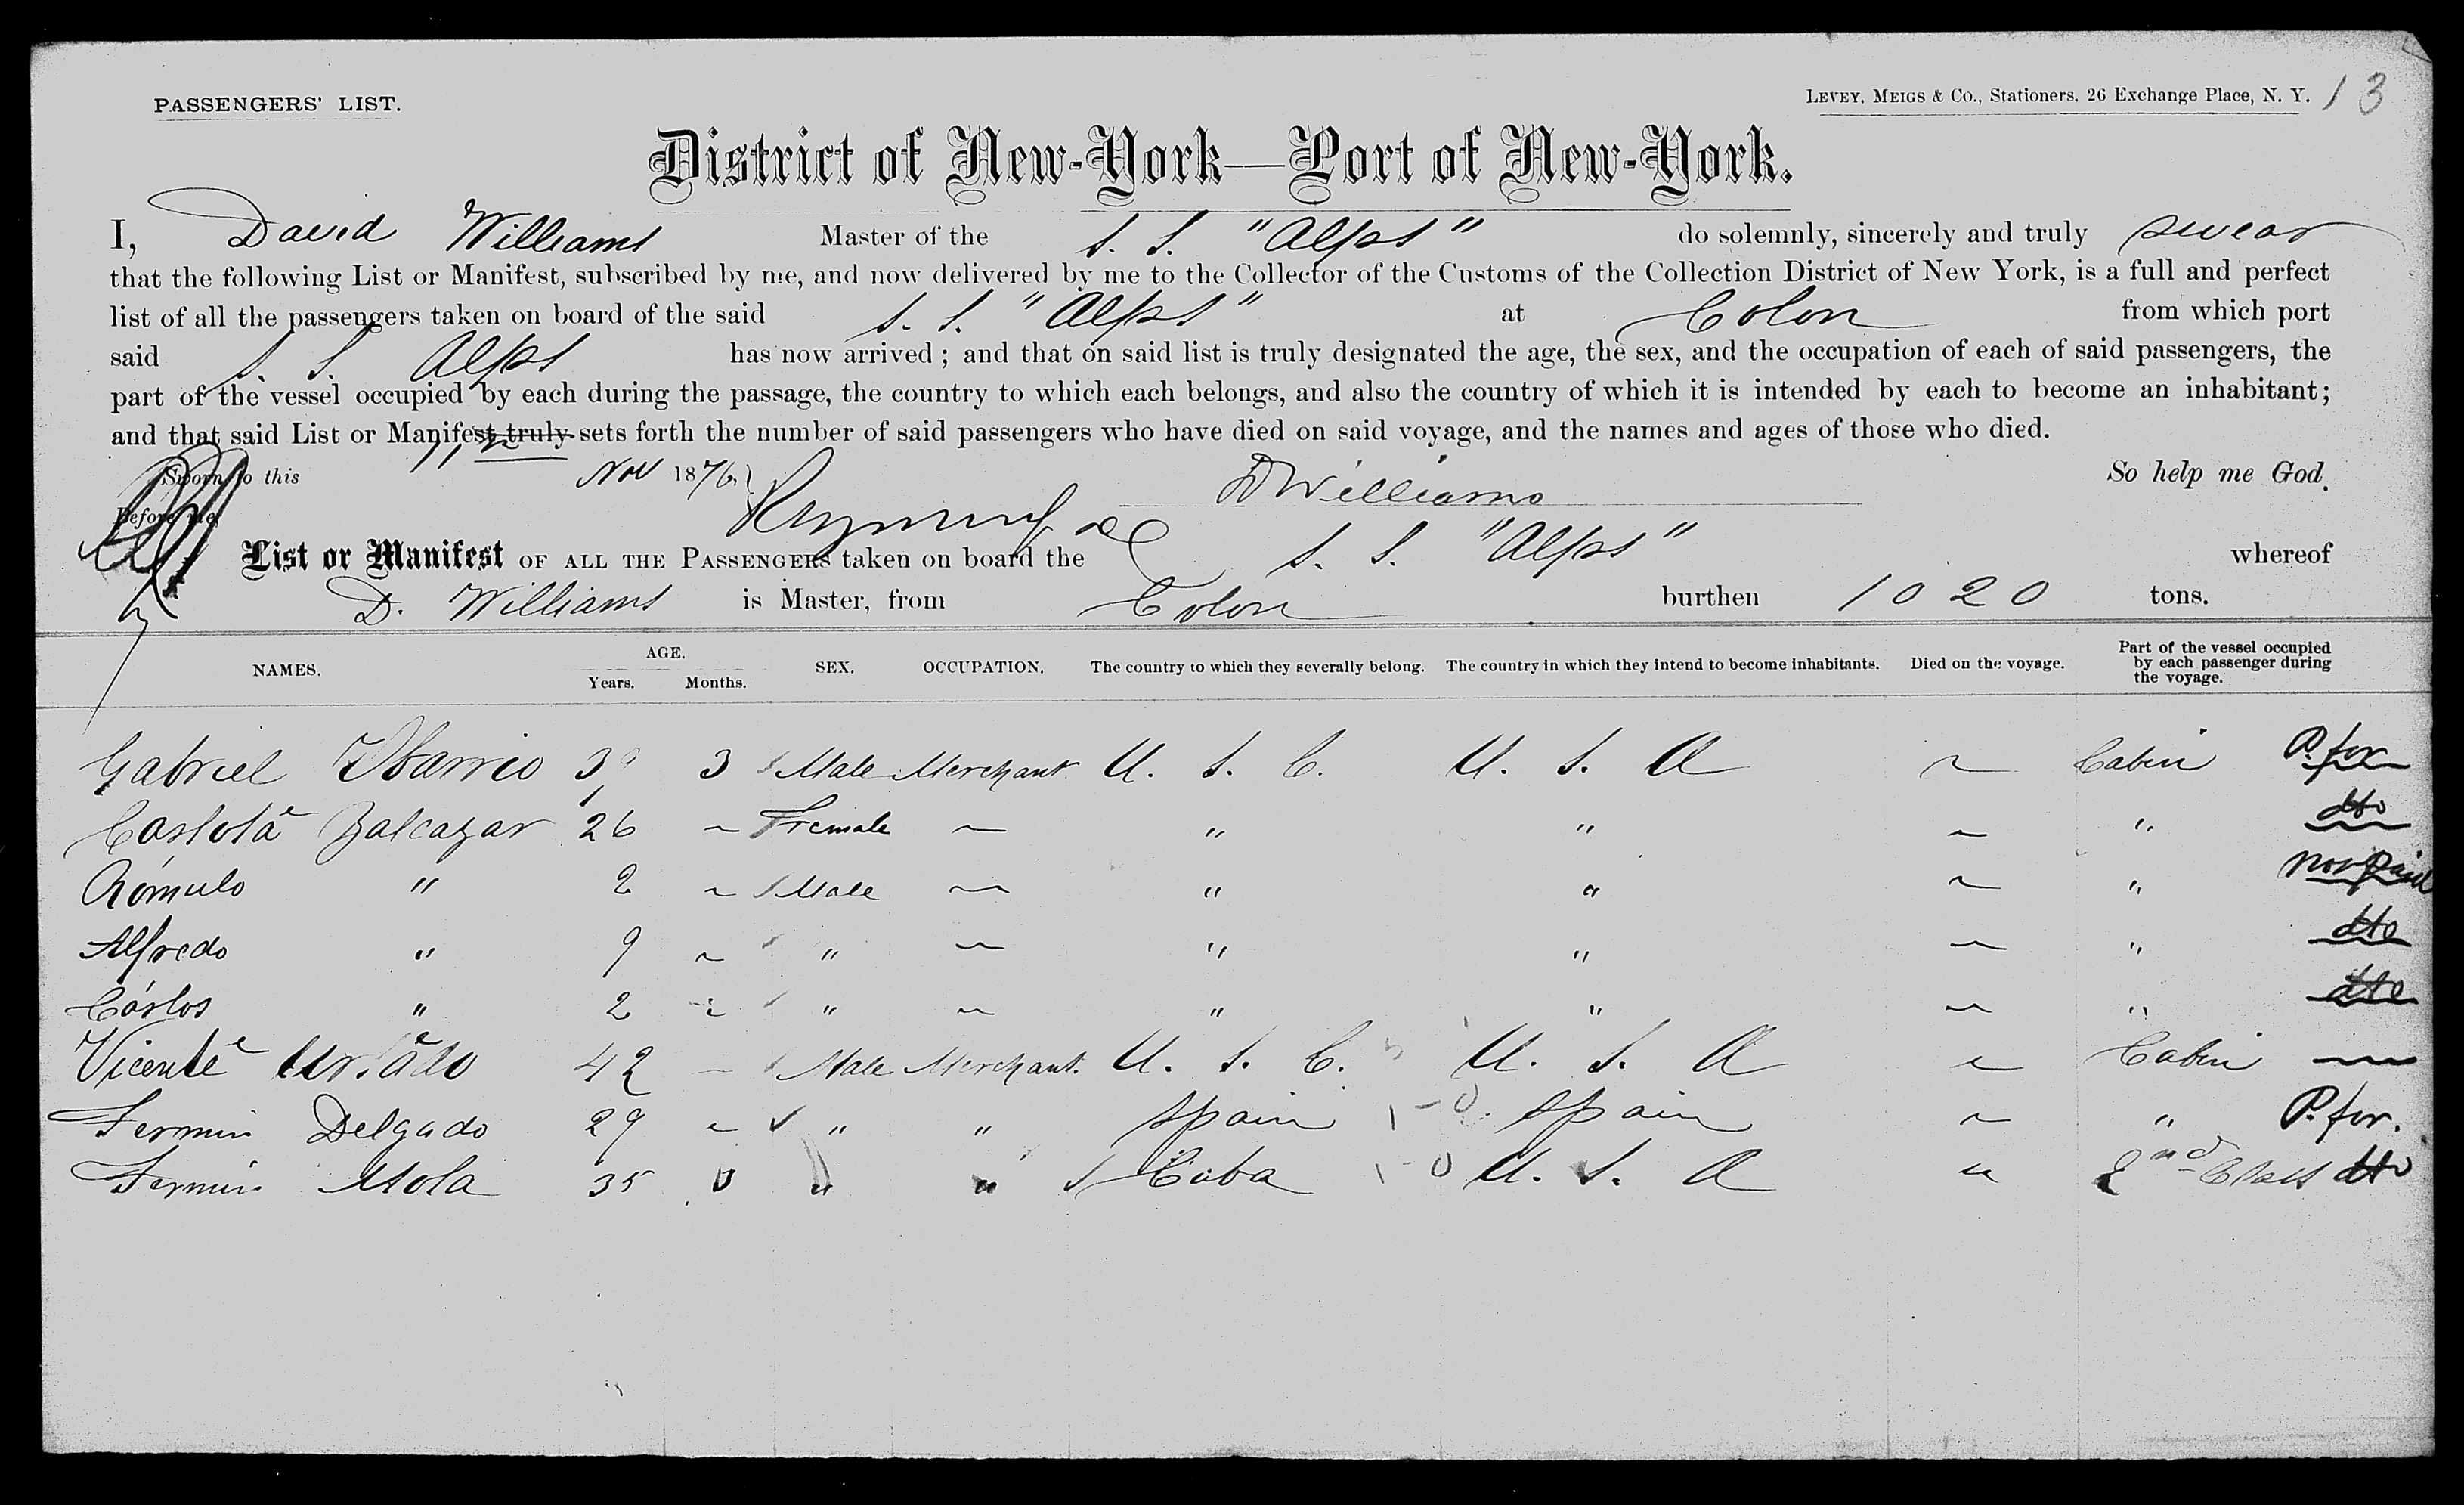 PASSENGERS' LIST.
LEVEY, MEIGS & Co., Stationers, 26 Exchange Place, N. Y. 13
District of New-York—Port of New-York.
I, David Williams Master of the S. S. "Alps" do solemnly, sincerely and truly swear
that the following List or Manifest, subscribed by me, and now delivered by me to the Collector of the Customs of the Collection District of New York, is a full and perfect
list of all the passengers taken on board of the said S. S. "Alps" at Colon from which port
said S. S. Alps has now arrived; and that on said list is truly designated the age, the sex, and the occupation of each of said passengers, the
part of the vessel occupied by each during the passage, the country to which each belongs, and also the country of which it is intended by each to become an inhabitant;
and that said List or Manifest truly sets forth the number of said passengers who have died on said voyage, and the names and ages of those who died.
Sworn to this Nov 1876 D Williams So help me God.
Before me,
List or Manifest OF ALL THE PASSENGERS taken on board the S. S. "Alps" whereof
D. Williams is Master, from Colon burthen 1020 tons.
NAMES. AGE. Years. Months. SEX. OCCUPATION. The country to which they severally belong. The country in which they intend to become inhabitants. Died on the voyage. Part of the vessel occupied by each passenger during the voyage.
Gabriel 3 Male Merchant U. S. C. U. S. A ~ Cabin P. for
Carlota 26 ~ Female ~ " " ~ " dto
Rómulo " 2 ~ Male ~ " " ~ " not paid
Alfredo " 9 ~ " ~ " " ~ " dto
Cárlos " 2 ~ " ~ " " ~ " dto
Vicente 42 — Male Merchant. U. S. C. U. S. A ~ Cabin —
Fermin Delgado 29 ~ " " Spain 1-0 Spain ~ " P. for.
Fermin Mola 35 " " " Cuba 1-0 U. S. A " 2nd Class dto